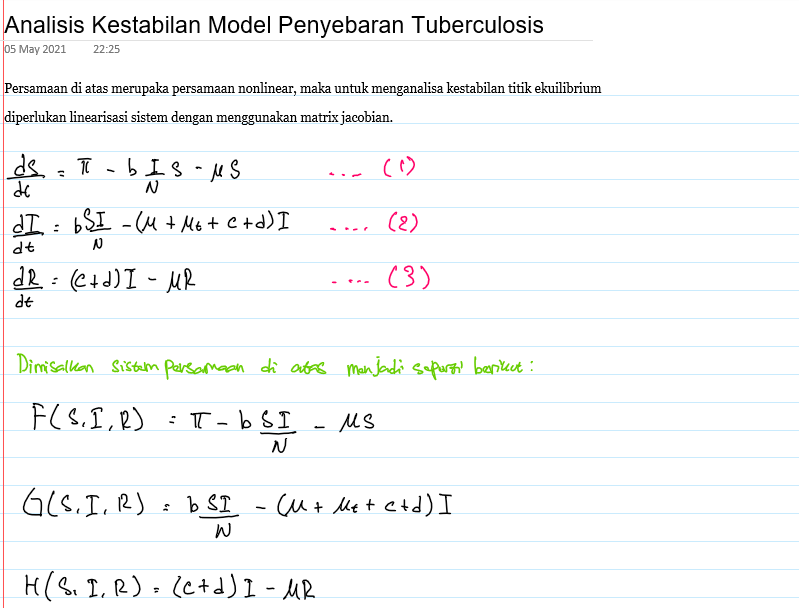 Analisis Kestabilan Model Penyebaran Tuberculosis
05 May 2021 22:25
Persamaan di atas merupaka persamaan nonlinear, maka untuk menganalisa kestabilan titik ekuilibrium
diperlukan linearisasi sistem dengan menggunakan matrix jacobian.
dS/dt = π - b I/N S - μS .... (1)
dI/dt = b SI/N - (μ + μt + c + d) I .... (2)
dR/dt = (c+d) I - μR .... (3)
Dimisalkan sistem persamaan di atas menjadi seperti berikut :
F(S, I, R) = π - b SI/N - μS
G(S, I, R) = b SI/N - (μ + μt + c + d) I
H(S, I, R) = (c+d) I - μR